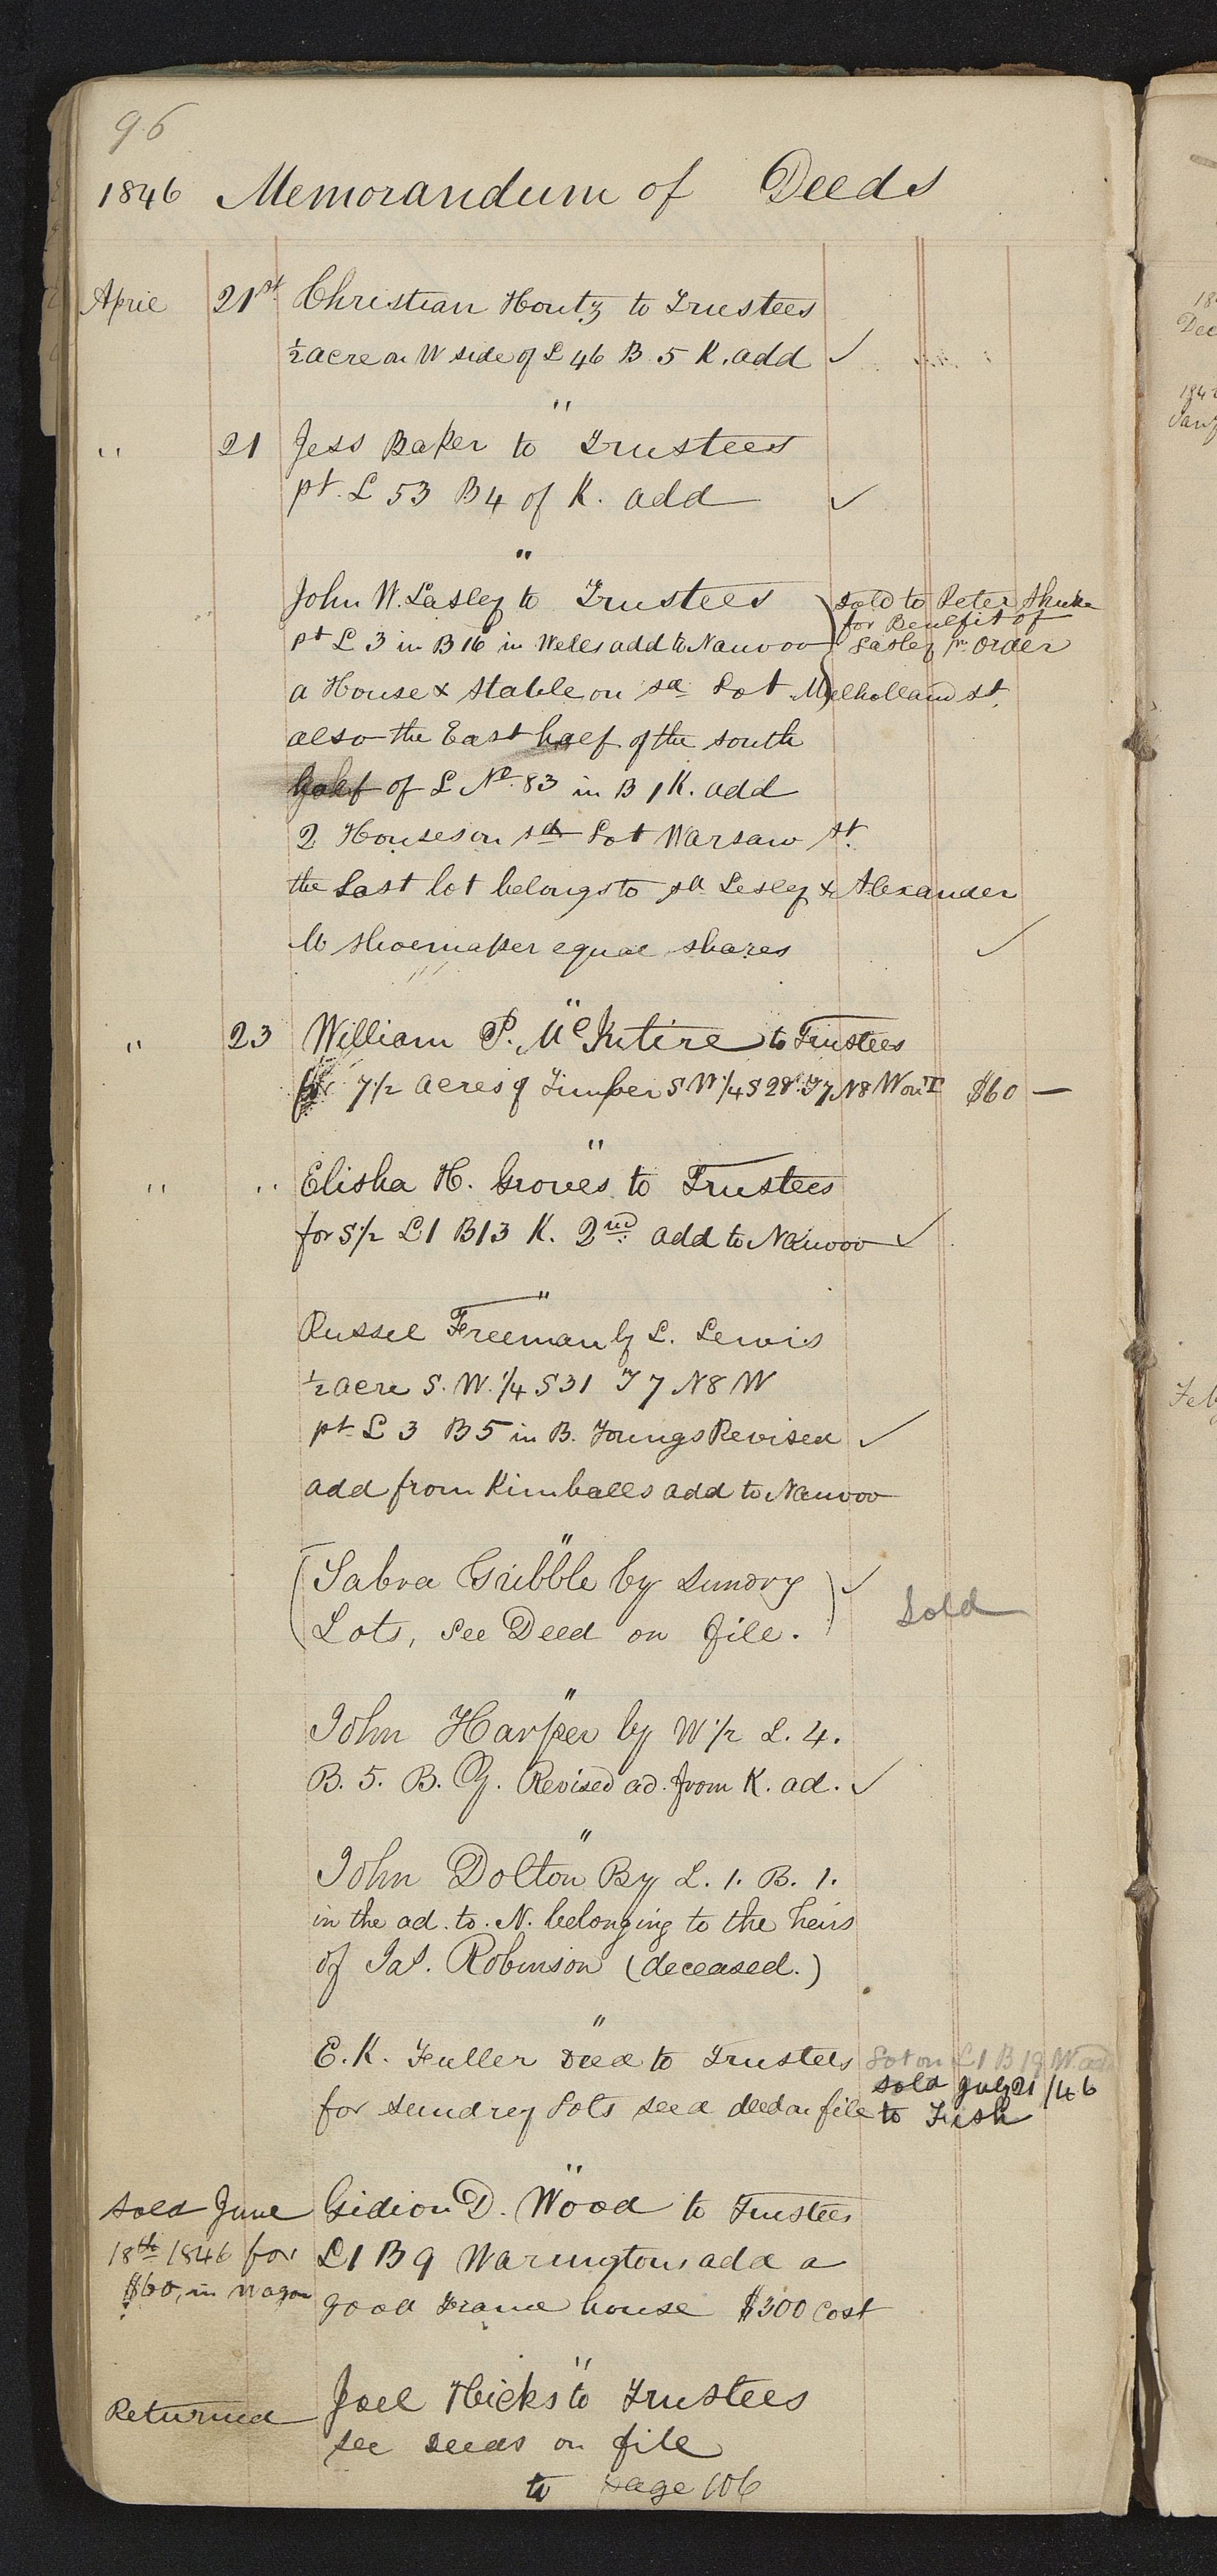 96
1846 Memorandum of Deeds
April 21st Christian Houtz to Trustees
½ acre on W side of L 46 B 5 K. add ✓
"
" 21 Jess Baker to Trustees
pt. L 53 B 4 of K. add ✓
"
John W. Lasley to Trustees
sold to Peter
for Benefit of
Lasley pr order
pt L 3 in B 16 in Wells add to Nauvoo
a House & Stable on sd Lot Mulholland st.
also the East half of the south
half of L No. 83 in B 1 K. add
2 Houses on sd Lot Warsaw st.
the Last lot belongs to sd Lesley & Alexander
M Shoemaker equal shares ✓
"
" 23 William P. McKntire to Trustees
for 7 1/2 acres of Timber S W 1/4 S 28 T 7 N 8 W on T $60 —
"
" " Elisha H. Groves to Trustees
for S 1/2 L 1 B 13 K. 2nd add to Nauvoo ✓
"
Russel Freeman by L. Lewis
½ acre S. W. 1/4 S 31 T 7 N 8 W
pt L 3 B 5 in B. Youngs Revised ✓
add from Kimballs add to Nauvoo
"
(Sabra Gribble by sundry ✓
Lots, See Deed on file.)
Sold
"
John Harper by W 1/2 L. 4.
B. 5. B. Y. Revised ad. from K. ad. ✓
"
John Dolton By L. 1. B. 1.
in the ad. to. N. belonging to the heirs
of Jas. Robinson (deceased.)
"
E. K. Fuller Deed to Trustees Lot on L 1 B 19 W add
sold July 21 /46
for sundrey Lots see a deed on file to Fish
"
Sold June Gidion D. Wood to Trustees
18th 1846 for L 1 B 9 Waringtons add a
$60, in wagon good Frame house $300 Cost
"
Returned Joel Hicks to Trustees
see deeds on file
to page 106